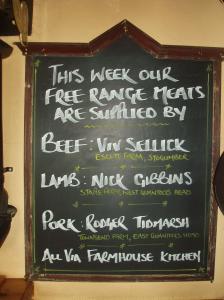 THIS WEEK OUR
FREE RANGE MEATS
ARE SUPPLIED BY
BEEF: VIV SELLICK
ESCOTT FARM, STOGUMBER
LAMB: NICK GIBBINS
FARM, WEST QUANTOCKS HEAD
PORK: RODGER TIDMARSH
TOWNSEND FARM, EAST QUANTOCKS HEAD
ALL VIA FARMHOUSE KITCHEN